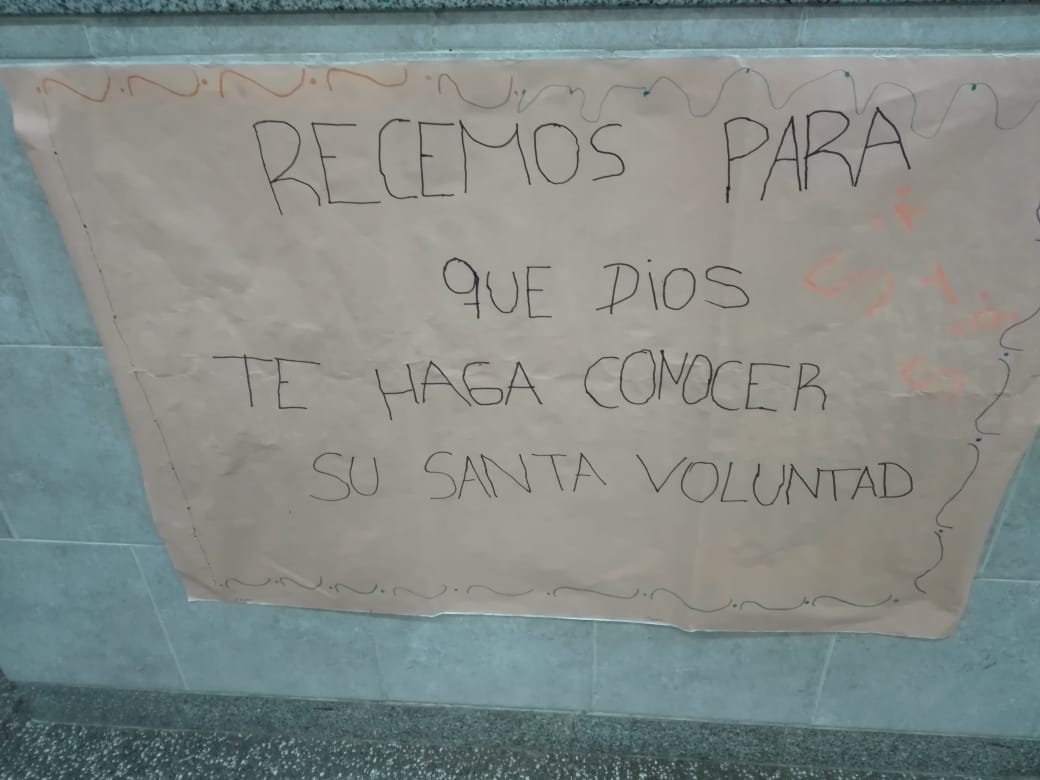 RECEMOS PARA
QUE DIOS
TE HAGA CONOCER
SU SANTA VOLUNTAD